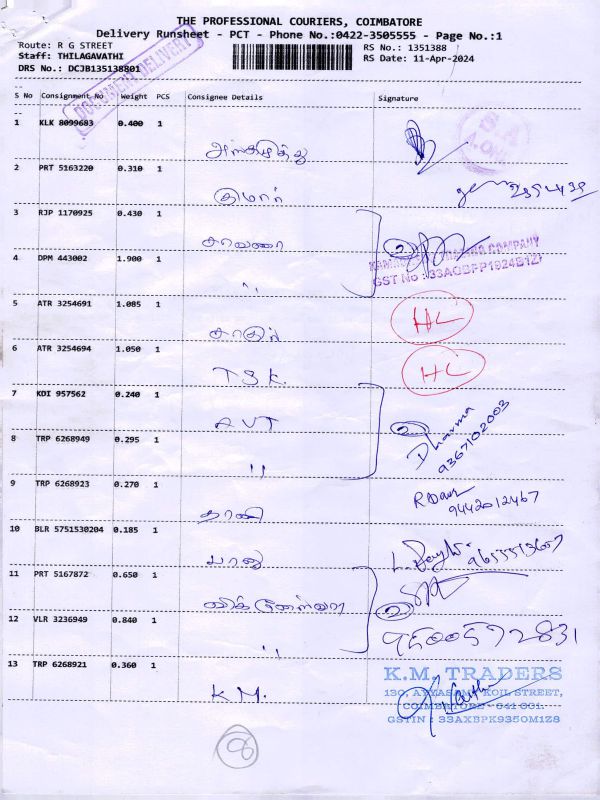 THE PROFESSIONAL COURIERS, COIMBATORE
Delivery Runsheet - PCT - Phone No.:0422-3505555 - Page No.:1
Route: R G STREET
RS No.: 1351388
Staff: THILAGAVATHI
RS Date: 11-Apr-2024
DRS No.: DCJB135138801
DOCUMENT DELIVERY
S No Consignment No Weight PCS Consignee Details Signature
1 KLK 8099683 0.400 1
2 PRT 5163220 0.310 1
குமார்
3 RJP 1170925 0.430 1
சரவணா
2
4 DPM 443002 1.900 1
TRADING COMPANY
GST No : 33AQBFP1924B1ZI
"
5 ATR 3254691 1.085 1
HC
6 ATR 3254694 1.050 1
HC
T S K
7 KDI 957562 0.240 1
AVT
2
Dharma
9367102003
8 TRP 6268949 0.295 1
"
9 TRP 6268923 0.270 1
9442012467
10 BLR 5751530204 0.185 1
பாலு
11 PRT 5167872 0.650 1
2
12 VLR 3236949 0.840 1
9500572831
"
13 TRP 6268921 0.360 1
K.M.
K.M. TRADERS
130, AYYASAMY KOIL STREET,
COIMBATORE - 641 001.
GSTIN : 33AXBPK9350M1Z8
98